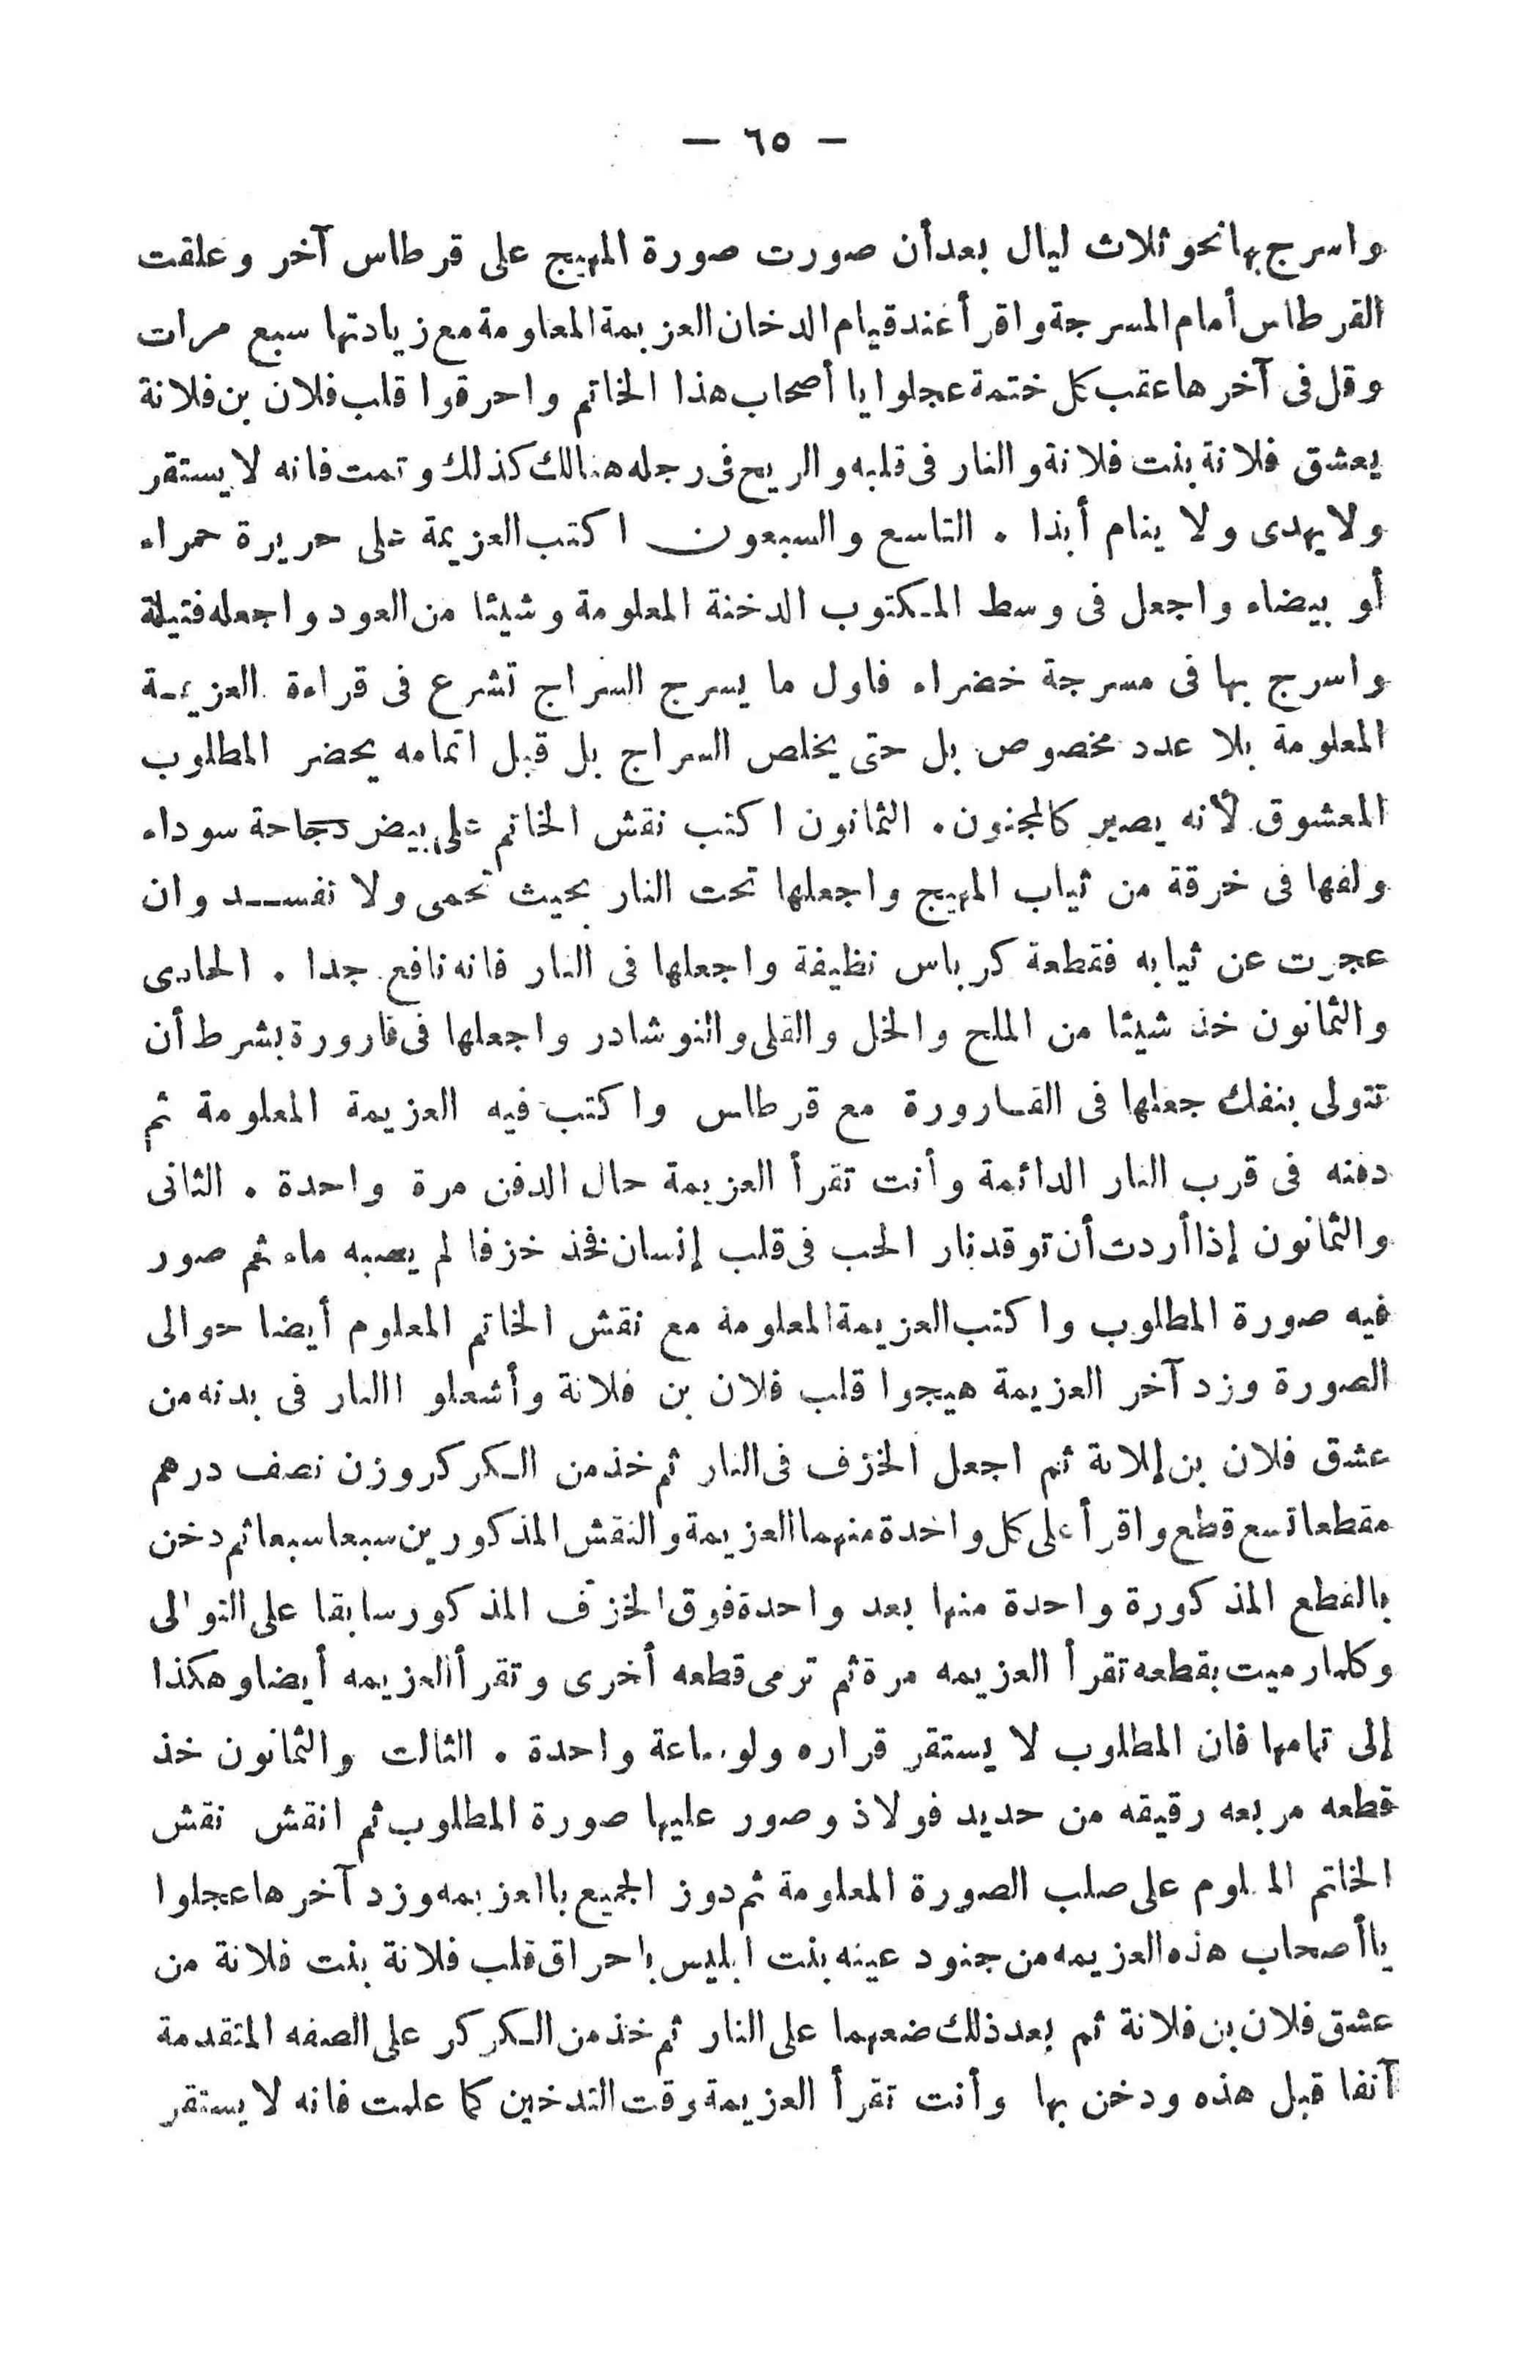 — ٦٥ —
واسرج بها نحو ثلاث ليال بعد أن صورت صورة المهيج على قرطاس آخر وعلقت
القرطاس أمام المسرجة واقرأ عند قيام الدخان العزيمة المعلومة مع زيادتها سبع مرات
وقل فى آخرها عقب كل ختمة عجلوا يا أصحاب هذا الخاتم واحرقوا قلب فلان بن فلانة
يعشق فلانة بنت فلانة والنار فى قلبه والريح فى رجله هنالك كذلك وتمت فانه لا يستقر
ولا يهدى ولا ينام أبذا . التاسع والسبعون اكتب العزيمة على حريرة حمراء
أو بيضاء واجعل فى وسط المكتوب الدخنة المعلومة وشيئا من العود واجعله فتيلة
واسرج بها فى مسرجة خضراء فاول ما يسرج السراج تشرع فى قراءة العزيمة
المعلومة بلا عدد مخصوص بل حتى يخلص السراج بل قبل اتمامه يحضر المطلوب
المعشوق لأنه يصير كالمجنون . الثمانون اكتب نقش الخاتم على بيض دجاحة سوداء
ولفها فى خرقة من ثياب المهيج واجعلها تحت النار بحيث تحمى ولا تفسد وان
عجزت عن ثيابه فقطعة كرباس نظيفة واجعلها فى النار فانه نافع جدا . الحادى
والثمانون خذ شيئا من الملح والخل والقلى والنوشادر واجعلها فى قارورة بشرط أن
تتولى بنفك جعلها فى القارورة مع قرطاس واكتب فيه العزيمة المعلومة ثم
دفنه فى قرب النار الدائمة وأنت تقرأ العزيمة حال الدفن مرة واحدة . الثانى
والثمانون إذا أردت أن توقد نار الحب فى قلب إنسان فخذ خزفا لم يصبه ماء ثم صور
فيه صورة المطلوب واكتب العزيمة المعلومة مع نقش الخاتم المعلوم أيضا حوالى
الصورة وزد آخر العزيمة هيجوا قلب فلان بن فلانة وأشعلو االنار فى بدنه من
عشق فلان بن فلانة ثم اجعل الخزف فى النار ثم خذ من الكركر وزن نصف درهم
مقطعا تسع قطع واقرأ على كل واحدة منهما العزيمة والنقش المذكورين سبعا سبعا ثم دخن
بالقطع المذكورة واحدة منها بعد واحدة فوق الخزف المذكور سابقا على التوالى
وكلما رميت بقطعه تقرأ العزيمه مرة ثم ترمى قطعه أخرى وتقرأ العزيمه أيضا وهكذا
إلى تمامها فان المطلوب لا يستقر قراره ولو ساعة واحدة . الثالث والثمانون خذ
قطعه مربعه رقيقه من حديد فولاذ وصور عليها صورة المطلوب ثم انقش نقش
الخاتم المعلوم على صلب الصورة المعلومة ثم دوز الجميع باالعزيمه وزد آخرها عجلوا
ياأصحاب هذه العزيمه من جنود عينه بنت ابليس باحراق قلب فلانة بنت فلانة من
عشق فلان بن فلانة ثم بعد ذلك ضعهما على النار ثم خذ من الكركر على الصفه المتقدمة
آنفا قبل هذه ودخن بها وأنت تقرأ العزيمة وقت التدخين كما علمت فانه لا يستقر